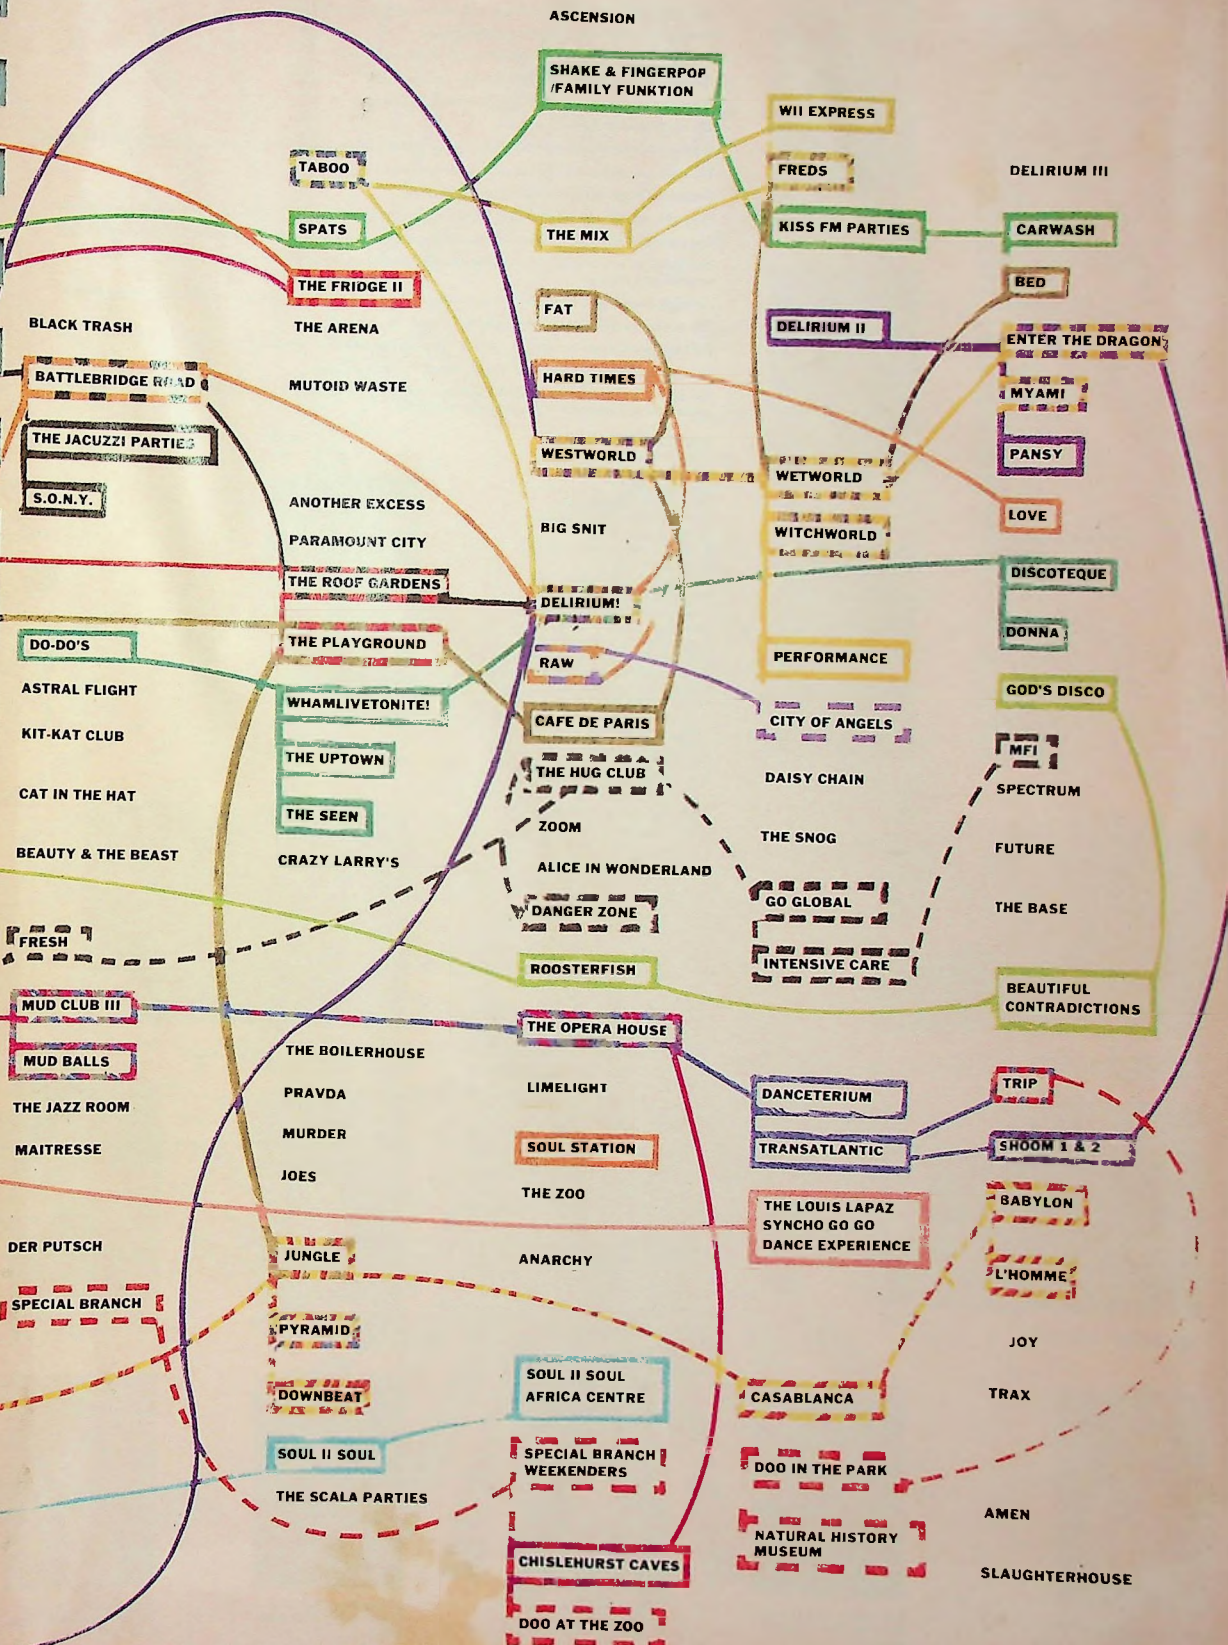 BLACK TRASH
BATTLEBRIDGE ROAD
THE JACUZZI PARTIES
S.O.N.Y.
DO-DO'S
ASTRAL FLIGHT
KIT-KAT CLUB
CAT IN THE HAT
BEAUTY & THE BEAST
FRESH
MUD CLUB III
MUD BALLS
THE JAZZ ROOM
MAITRESSE
DER PUTSCH
SPECIAL BRANCH
TABOO
SPATS
THE FRIDGE II
THE ARENA
MUTOID WASTE
ANOTHER EXCESS
PARAMOUNT CITY
THE ROOF GARDENS
THE PLAYGROUND
WHAMLIVETONITE!
THE UPTOWN
THE SEEN
CRAZY LARRY'S
THE BOILERHOUSE
PRAVDA
MURDER
JOES
JUNGLE
PYRAMID
DOWNBEAT
SOUL II SOUL
THE SCALA PARTIES
ASCENSION
SHAKE & FINGERPOP
/FAMILY FUNKTION
THE MIX
FAT
HARD TIMES
WESTWORLD
BIG SNIT
DELIRIUM!
RAW
CAFE DE PARIS
THE HUG CLUB
ZOOM
ALICE IN WONDERLAND
DANGER ZONE
ROOSTERFISH
THE OPERA HOUSE
LIMELIGHT
SOUL STATION
THE ZOO
ANARCHY
SOUL II SOUL
AFRICA CENTRE
SPECIAL BRANCH
WEEKENDERS
CHISLEHURST CAVES
DOO AT THE ZOO
WII EXPRESS
FREDS
KISS FM PARTIES
DELIRIUM II
WETWORLD
WITCHWORLD
PERFORMANCE
CITY OF ANGELS
DAISY CHAIN
THE SNOG
GO GLOBAL
INTENSIVE CARE
DANCETERIUM
TRANSATLANTIC
THE LOUIS LAPAZ
SYNCHO GO GO
DANCE EXPERIENCE
CASABLANCA
DOO IN THE PARK
NATURAL HISTORY
MUSEUM
DELIRIUM III
CARWASH
BED
ENTER THE DRAGON
MYAMI
PANSY
LOVE
DISCOTEQUE
DONNA
GOD'S DISCO
MFI
SPECTRUM
FUTURE
THE BASE
BEAUTIFUL
CONTRADICTIONS
TRIP
SHOOM 1 & 2
BABYLON
L'HOMME
JOY
TRAX
AMEN
SLAUGHTERHOUSE